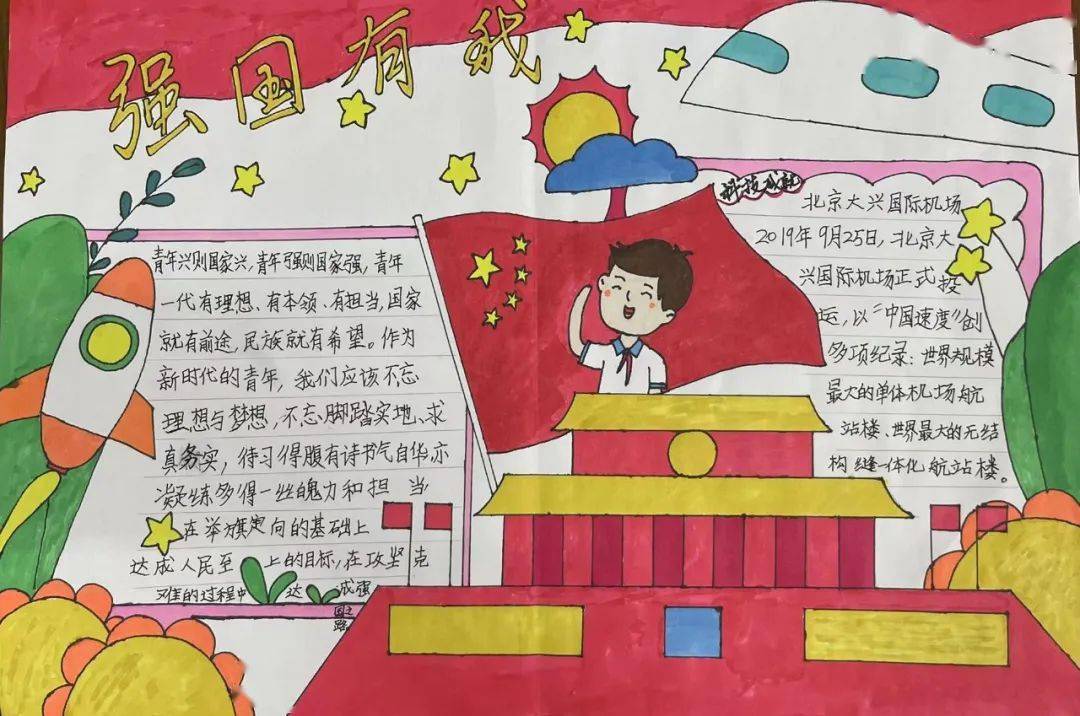 强国有我
青年兴则国家兴，青年强则国家强，青年
一代有理想、有本领、有担当，国家
就有前途，民族就有希望。作为
新时代的青年，我们应该不忘
理想与梦想，不忘脚踏实地、求
真务实，待习得腹有诗书气自华，亦
凝练多得一丝魄力和担当
在举旗定向的基础上
达成人民至上的目标，在攻坚克
难的过程中达成强
国之路
科技成就
北京大兴国际机场
2019年9月25日，北京大
兴国际机场正式投
运，以“中国速度”创
多项纪录：世界规模
最大的单体机场航
站楼、世界最大的无结
构缝一体化航站楼。